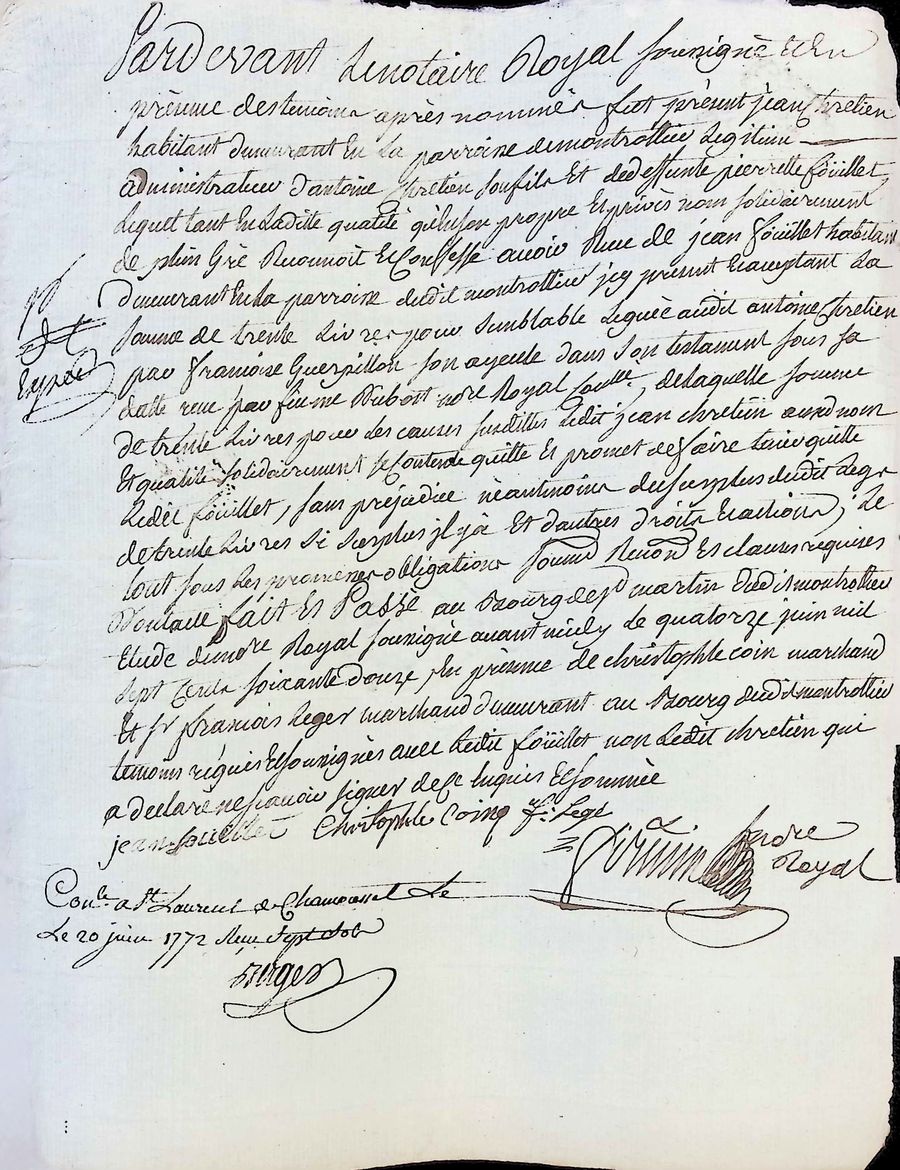 Pardevant Le notaire Royal soussigné et en
présence des temoins après nommés fut présent jean chretien
habitant demeurant En La parroisse de montrottier Legitime
administrateur d'antoine Chretien son fils Et de deffunte pierrette foüillet
Lequel tant En Laditte qualité qu'en son propre Et privés nom solidairement
de plein Gré Reconnoit Et Confesse avoir Reçu de jean foüillet habitant
demeurant En La parroisse dudit montrottier icy present Et acceptant La
somme de trente Livres pour semblable Leguée audit antoine chretien
par Françoise Guerpillon son ayeule dans son testament sous sa
datte reçu par feu me Dubost nore Royal, de Laquelle somme
de trente Livres pour Les causes susdittes Ledit jean chretien audit nom
Et qualité solidairement se Contente quitte Et promet de faire tenir quitte
Ledit foüillet, sans préjudice néantmoins du surplus dudit Legs
de trente Livres si surplus il y a Et d'autres droits Et actions; Le
tout sous Les promesses obligations soumõn Renõn Et clauses requises
Dont acte fait Et Passé au Bourg de st martin dudit montrottier
Etude du nore Royal soussigné avant midy Le quatorze juin mil
sept Cents soixante douze, En présence de christophle coin marchand
Et sr françois Leger marchand demeurant au Bourg dudit montrottier
temoins réquis Et soussignés avec Ledit foüillet non Ledit chretien qui
a declaré ne sçavoir signer de ce Enquis Et sommée
jean fouillet Christophle Coinq fs. Lege
nore
Royal
Conlé a St. Laurent de Chamousset Le
Le 20 juin 1772 Reçu sept sols
Berger
Expedié